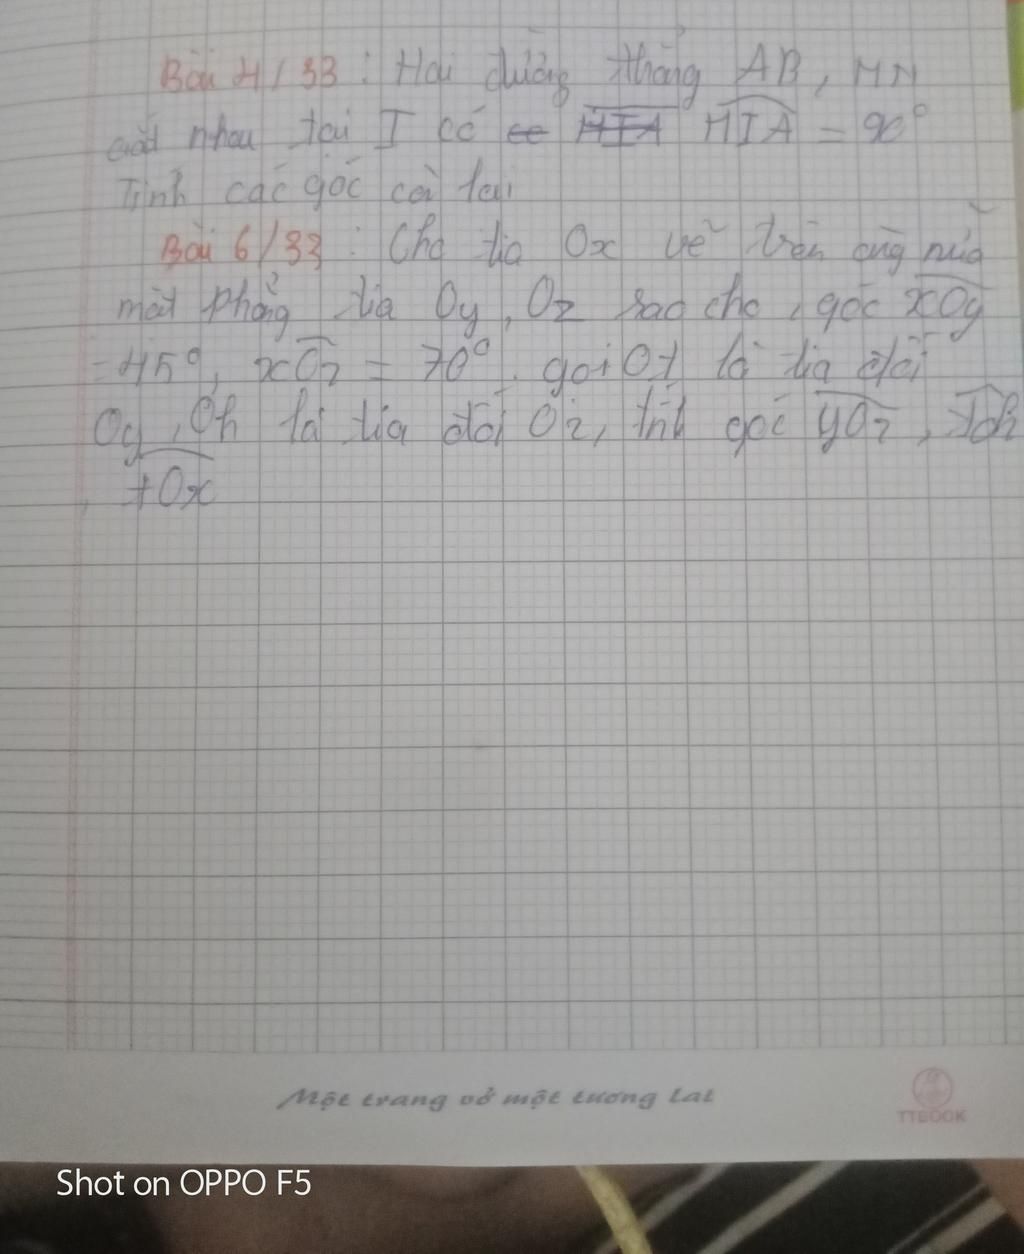 Bài 4/33 : Hai đường thẳng AB, MN
cắt nhau tại I có MIA = 90°
Tính các góc cò lại
Bài 6/33 : Cho tia Ox vẽ trên cùng nửa
mặt phẳng tia Oy, Oz sao cho, góc xOy
= 45°, xOz = 70°. gọi Ot là tia đối
Oy, Oh là tia đối Oz, tính góc yOz, tOh
, tOx
Một trang vở một tương lai
TTBOOK
Shot on OPPO F5